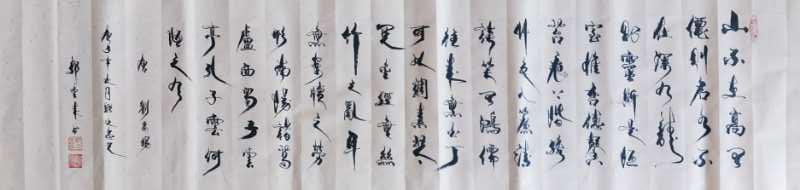 山不在高有
僊則名水不
在深有龍
則靈斯是陋
室惟吾德馨
苔痕上階綠
草色入簾青
談笑有鴻儒
往來無白丁
可以調素琴
閱金經無絲
竹之亂耳
無案牘之勞
形南陽諸葛
廬西蜀子雲
亭孔子云何
陋之有
唐 劉禹錫
庚子年 月
郭 書